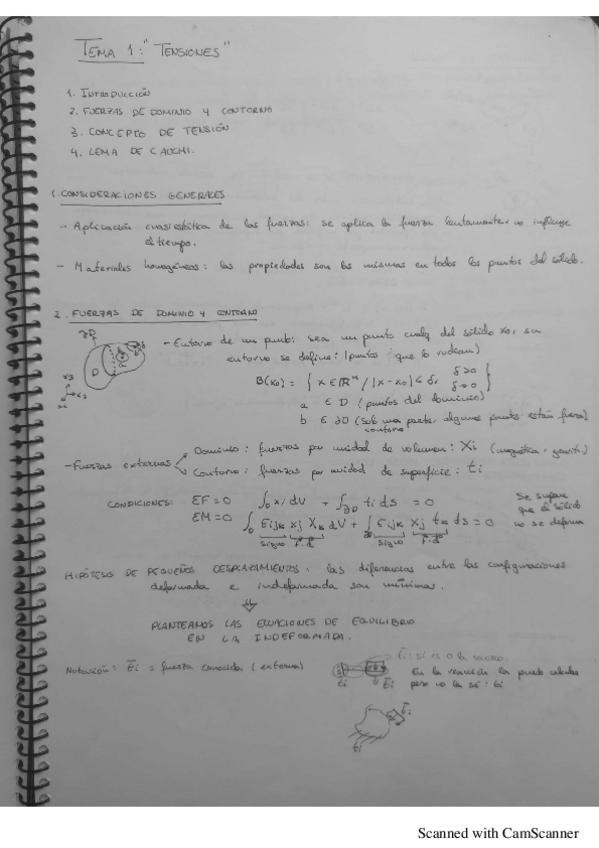 TEMA 1: "TENSIONES"
1. INTRODUCCIÓN
2. FUERZAS DE DOMINIO Y CONTORNO
3. CONCEPTO DE TENSIÓN
4. LEMA DE CAUCHI.
1. CONSIDERACIONES GENERALES
- Aplicación cuasiestática de las fuerzas: se aplica la fuerza lentamente no influye
el tiempo.
- Materiales homogéneos: las propiedades son las mismas en todos los puntos del sólido.
2. FUERZAS DE DOMINIO Y CONTORNO
∂D
D
- Entorno de un punto: sea un punto cualq del sólido x₀, su
entorno se define: (puntos que lo rodean)
B(x₀) = { x ∈ ℝⁿ / |x - x₀| < δ, δ>0 δ→0 }
a ∈ D (puntos del dominio)
b ∈ ∂D (sob una parte, algunos puntos están fuera)
contorno
- Fuerzas externas
Dominio: fuerzas por unidad de volumen: Xi
Contorno: fuerzas por unidad de superficie: ti
CONDICIONES: ΣF = 0 ∫D Xi dV + ∫∂D ti ds = 0
ΣM = 0 ∫D Eijk xj Xk dV + ∫ Eijk xj tk ds = 0
signo F·d signo F·d
Se supone
que el sólido
no se deforma
HIPÓTESIS DE PEQUEÑOS DESPLAZAMIENTOS: las diferencias entre las configuraciones
deformada e indeformada son mínimas.
PLANTEAMOS LAS ECUACIONES DE EQUILIBRIO
EN LA INDEFORMADA.
Notación: t̄i = fuerza conocida (externa)
t̄i: sí
ti t̄i
En la reacción la puedo calcular
pero no la sé: ti
t̄i
ti
Scanned with CamScanner